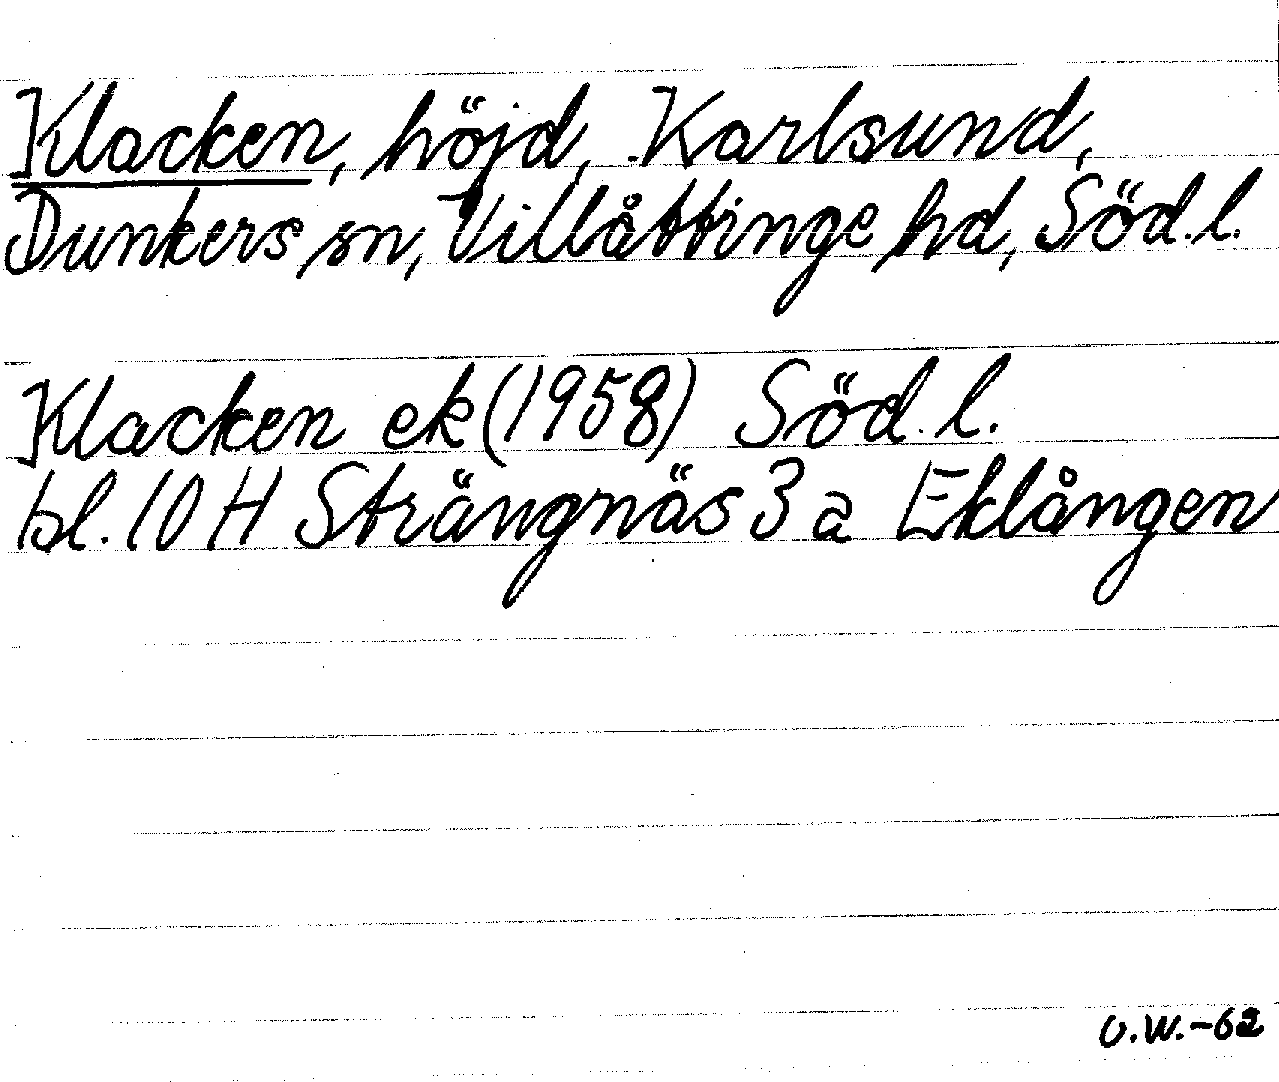 Klacken, höjd, Karlsund,
Dunkers sn, Villåttinge hd, Söd.l.
Klacken ek (1958) Söd.l.
bl. 10 H Strängnäs 3 a Eklången
O.W.-62